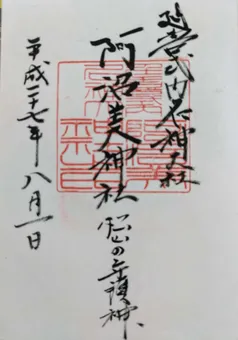 延喜式内名神大社
阿沼美神社
松山の守護神
平成二十七年八月一日